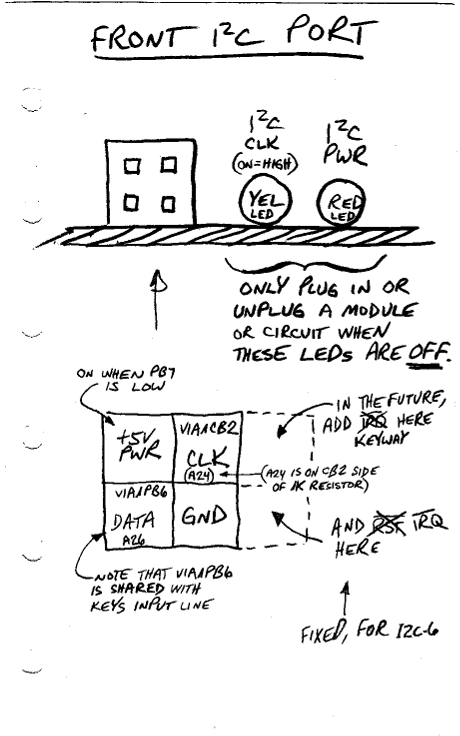 FRONT I²C PORT
I²C
CLK
(ON=HIGH)
I²C
PWR
YEL
LED
RED
LED
ONLY PLUG IN OR
UNPLUG A MODULE
OR CIRCUIT WHEN
THESE LEDs ARE OFF.
ON WHEN PB7
IS LOW
+5V
PWR
VIA1CB2
CLK
(A24)
VIA1PB6
DATA
A26
GND
IN THE FUTURE,
ADD IRQ HERE
KEYWAY
(A24 IS ON CB2 SIDE
OF 1K RESISTOR)
AND RST IRQ
HERE
NOTE THAT VIA1PB6
IS SHARED WITH
KEYS INPUT LINE
FIXED, FOR I2C-6